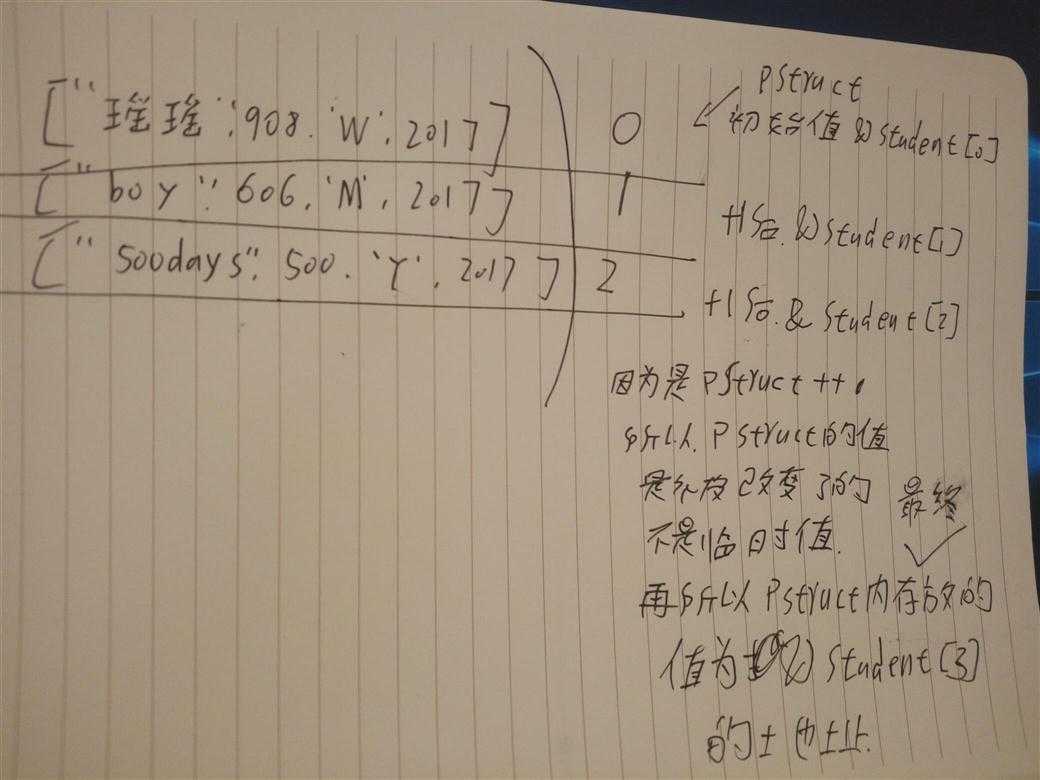 ["瑶瑶", 908, 'W', 2017] 0
["boy", 606, 'M', 2017] 1
["500days", 500, 'Y', 2017] 2
Pstruct
初始值 &student[0]
+1后. &student[1]
+1后. &student[2]
因为是 Pstruct++,
所以 Pstruct的值
是被改变了的
不是临时值.
最终
再所以 Pstruct内存放的
值为 & student[3]
的地址.